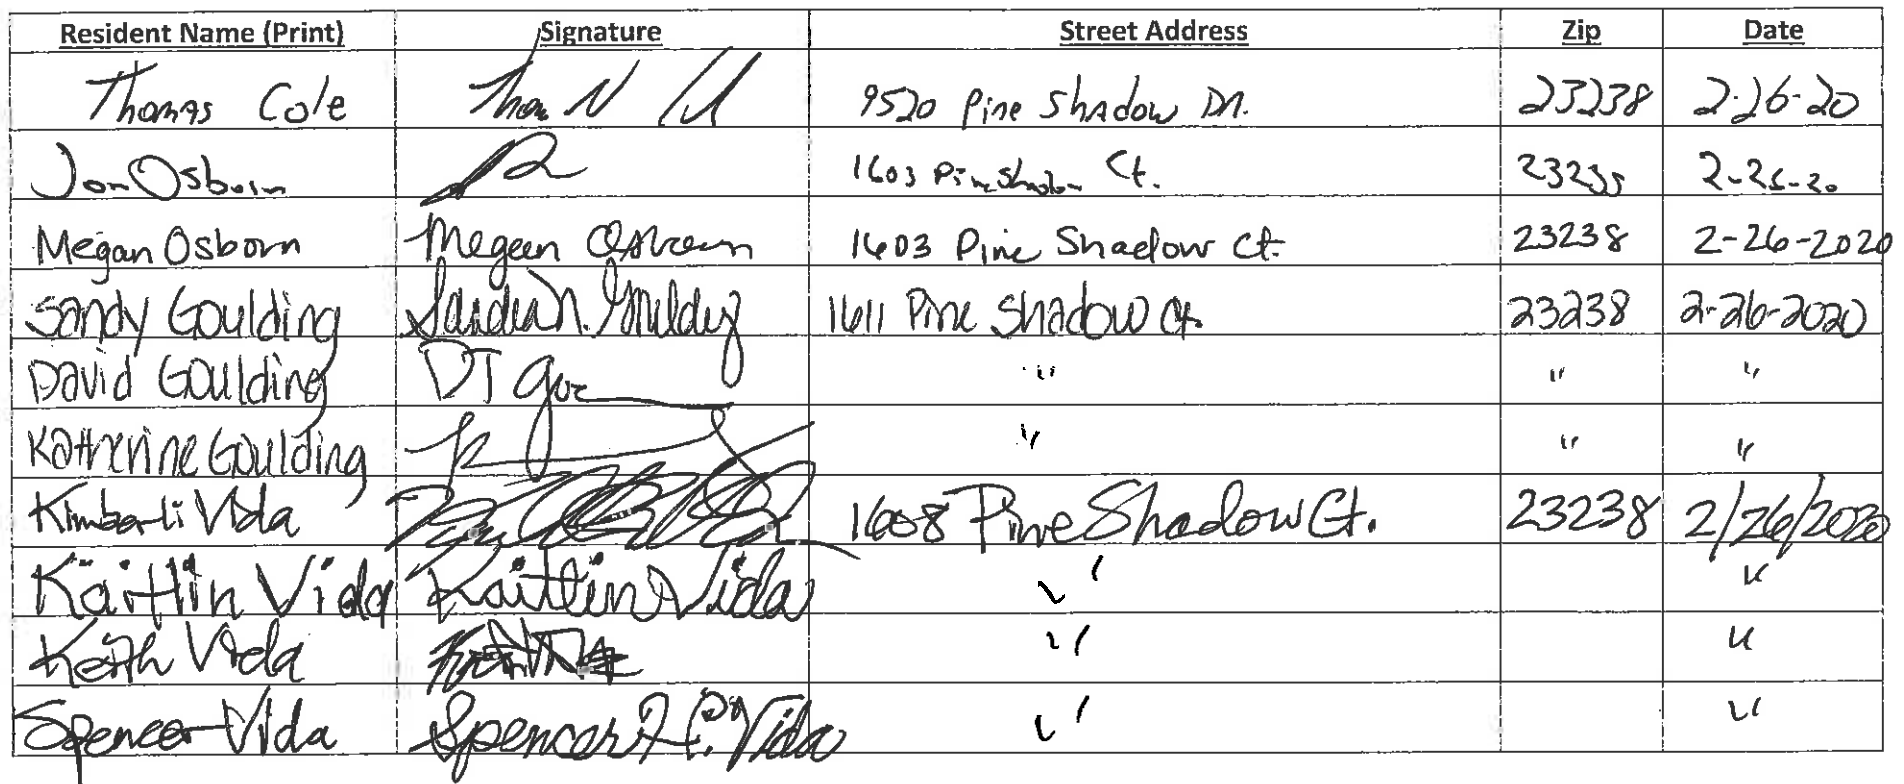 Resident Name (Print) Signature Street Address Zip Date
Thomas Cole 9520 Pine Shadow Dr. 23238 2-26-20
Jon Osborn 1603 Pine Shadow Ct. 2-26-20
Megan Osborn Megan Osborn 1603 Pine Shadow Ct. 23238 2-26-2020
Sandy Goulding 1611 Pine Shadow Ct. 23238 2-26-2020
David Goulding DT " " "
Katherine Goulding " " "
Kimberli Vida 1608 Pine Shadow Ct. 23238 2/26/2020
Kaitlin Vida Kaitlin Vida " "
Keith Vida " "
Spencer Vida Spencer Vida " "